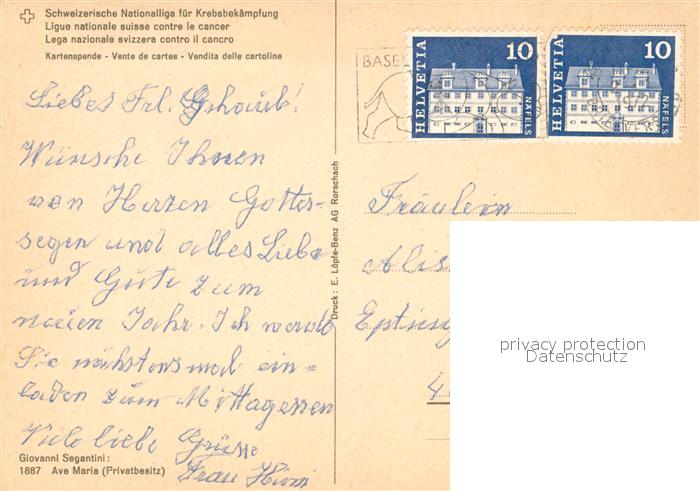 Schweizerische Nationalliga für Krebsbekämpfung
Ligue nationale suisse contre le cancer
Lega nazionale svizzera contro il cancro
Kartenspende - Vente de cartes - Vendita delle cartoline
Liebes Frl.
Wünsche Ihnen
von Herzen Gottes-
segen und alles Liebe
und Gute zum
neuen Jahr. Ich werde
Sie nächstens mal ein-
laden zum Mittagessen
Viele liebe Grüsse
Frau
Giovanni Segantini:
1887 Ave Maria (Privatbesitz)
Druck: E. Löpfe-Benz AG Rorschach
BASEL
HELVETIA 10 NÄFELS
HELVETIA 10 NÄFELS
Fräulein
Alis
Epting
4
privacy protection
Datenschutz